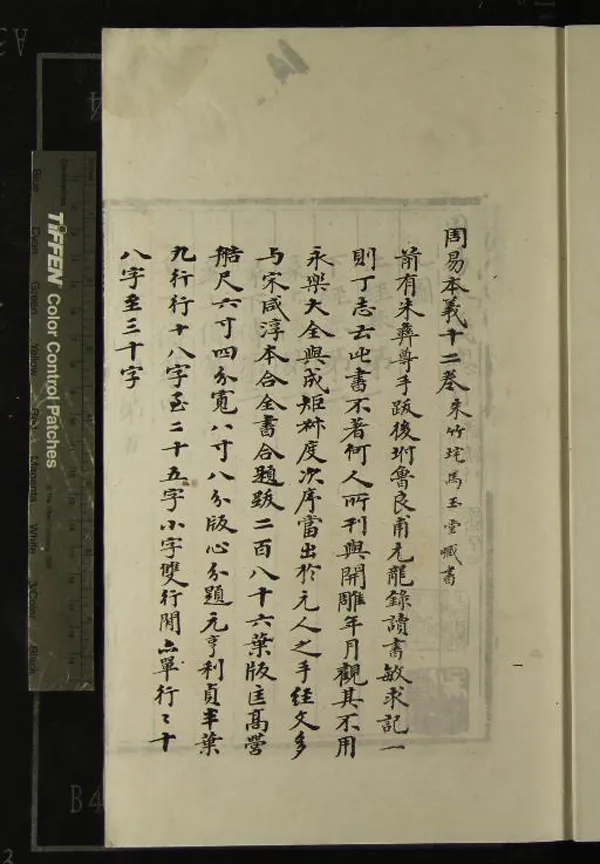 周易本義十二卷 朱竹垞馬玉堂藏書
前有朱彝尊手跋後坿魯良甫元龍錄讀書敏求記一
則丁志云此書不著何人所刊與開雕年月觀其不用
永樂大全與成矩栞度次序當出於元人之手經文多
与宋咸淳本合全書合題跋二百八十六葉版匡高營
艁尺六寸四分寬八寸八分版心分題元亨利貞半葉
九行行十八字至二十五字小字雙行閒亦單行〻十
八字至三十字
TIFFEN Color Control Patches
Blue
Cyan
Green
Yellow
Red
Magenta
White
3/Color
Black
B4